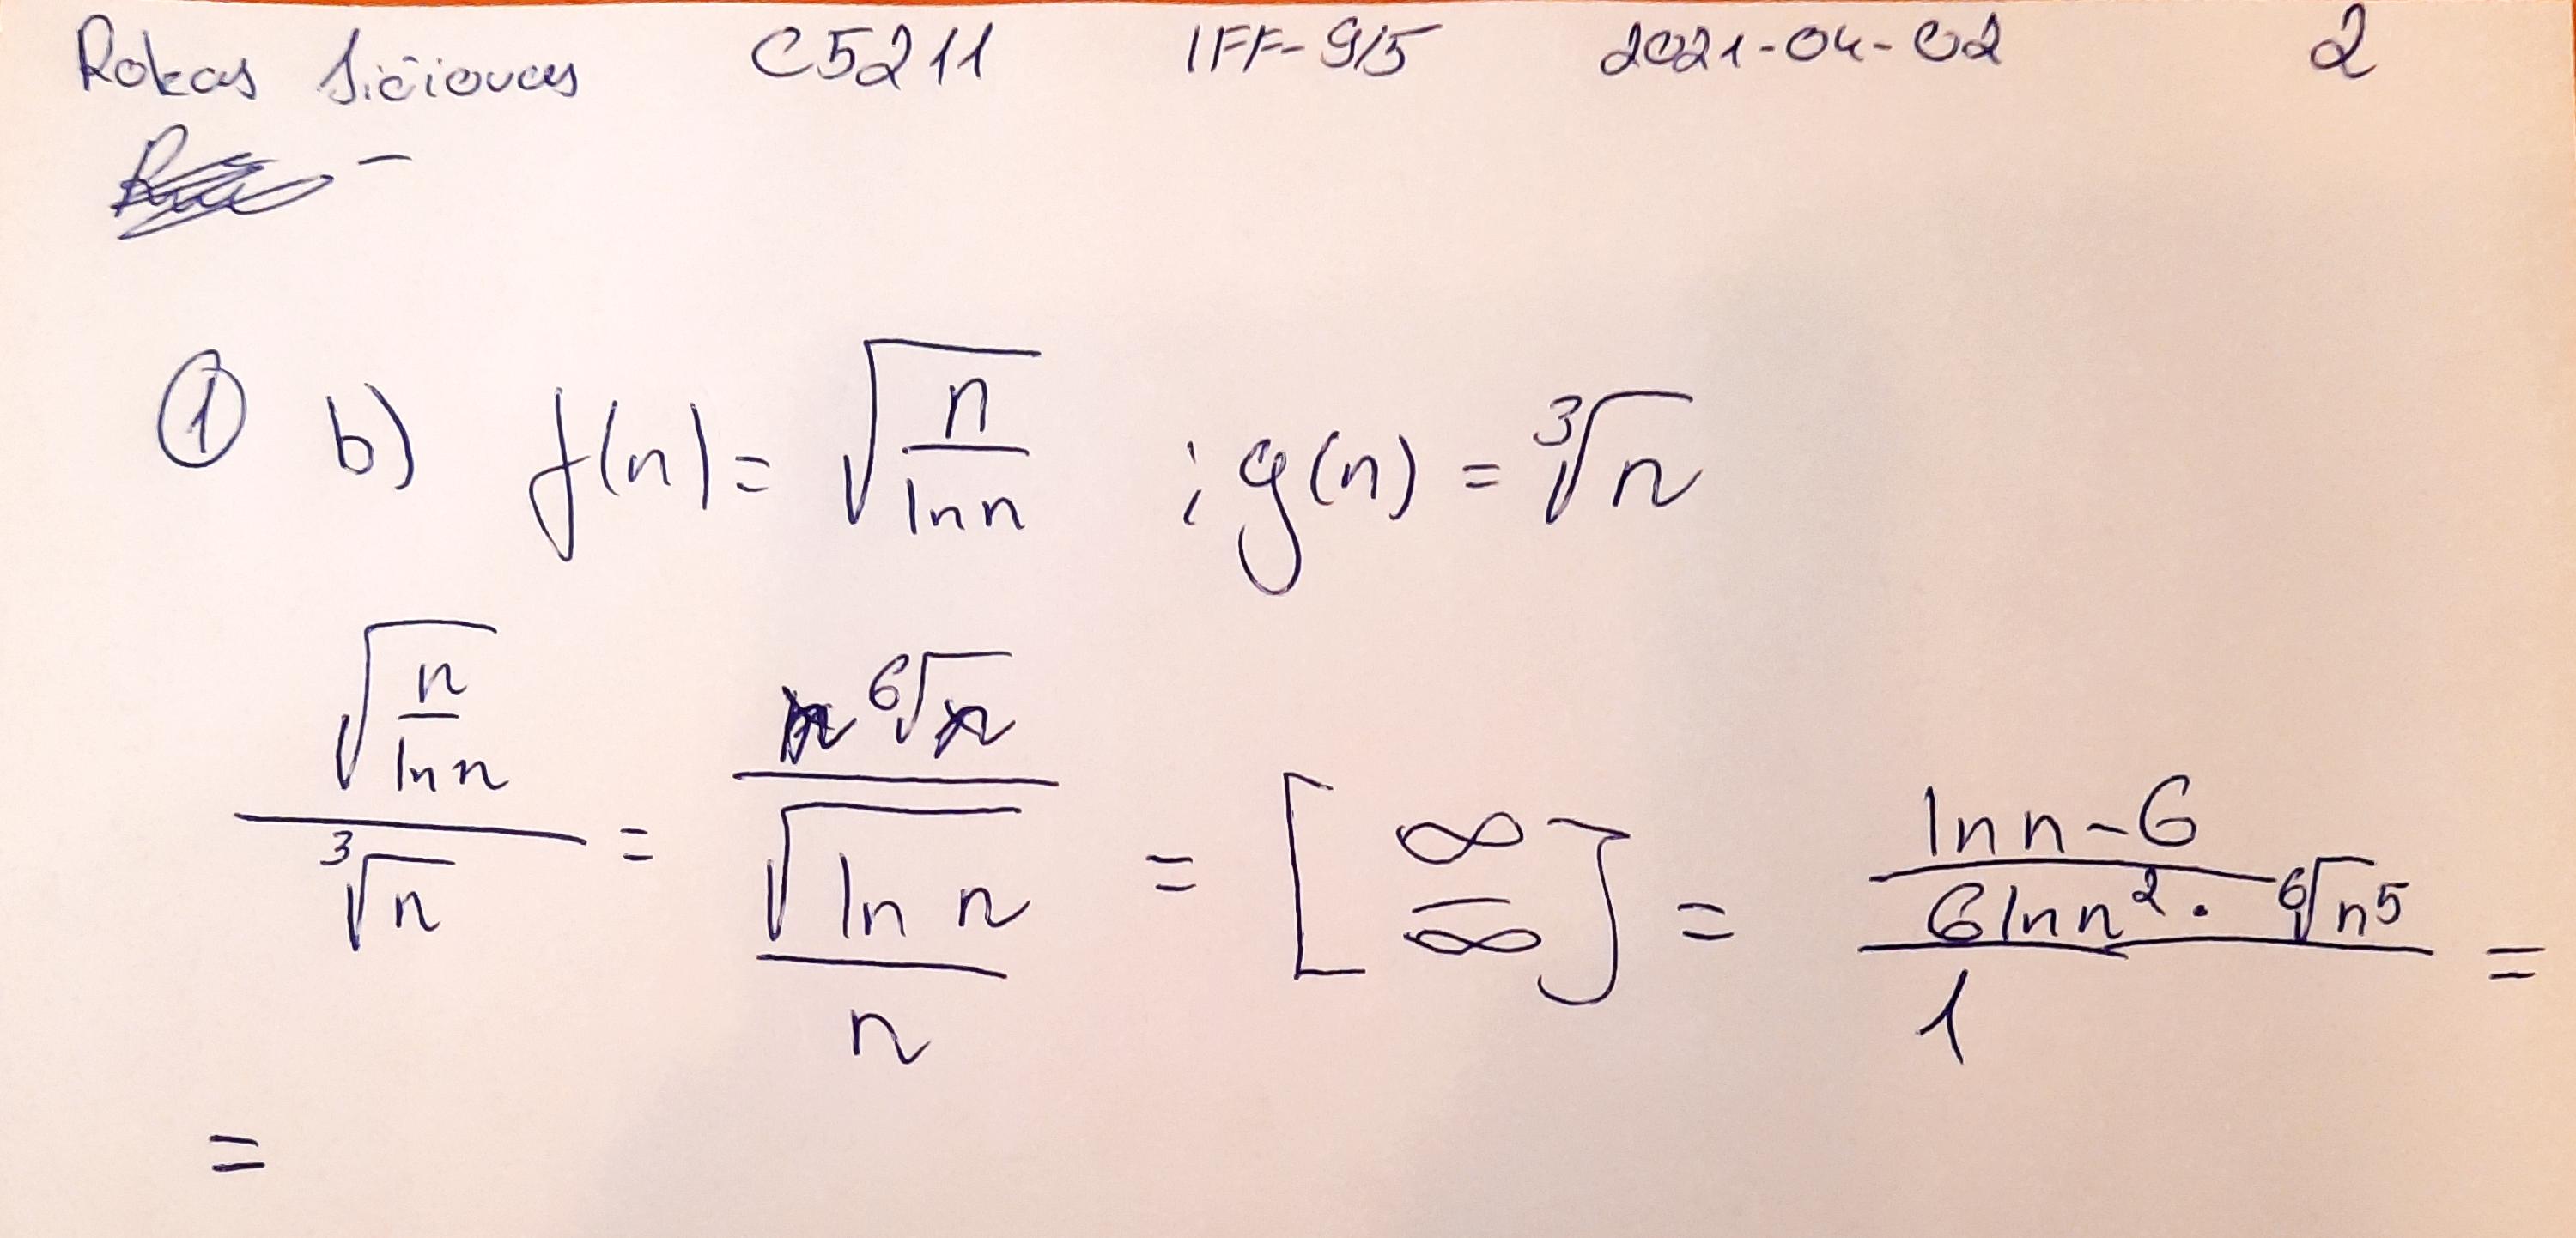 Rokas Šičiovas C5211 IFF-9/5 2021-04-02 2
① b) f(n) = √(n/ln n) ; g(n) = ³√n
√(n/ln n)/³√n = (n ⁶√n)/(√(ln n)/n) = [∞/∞] = ((ln n - 6)/(6 ln n² · ⁶√n⁵))/1 =
=